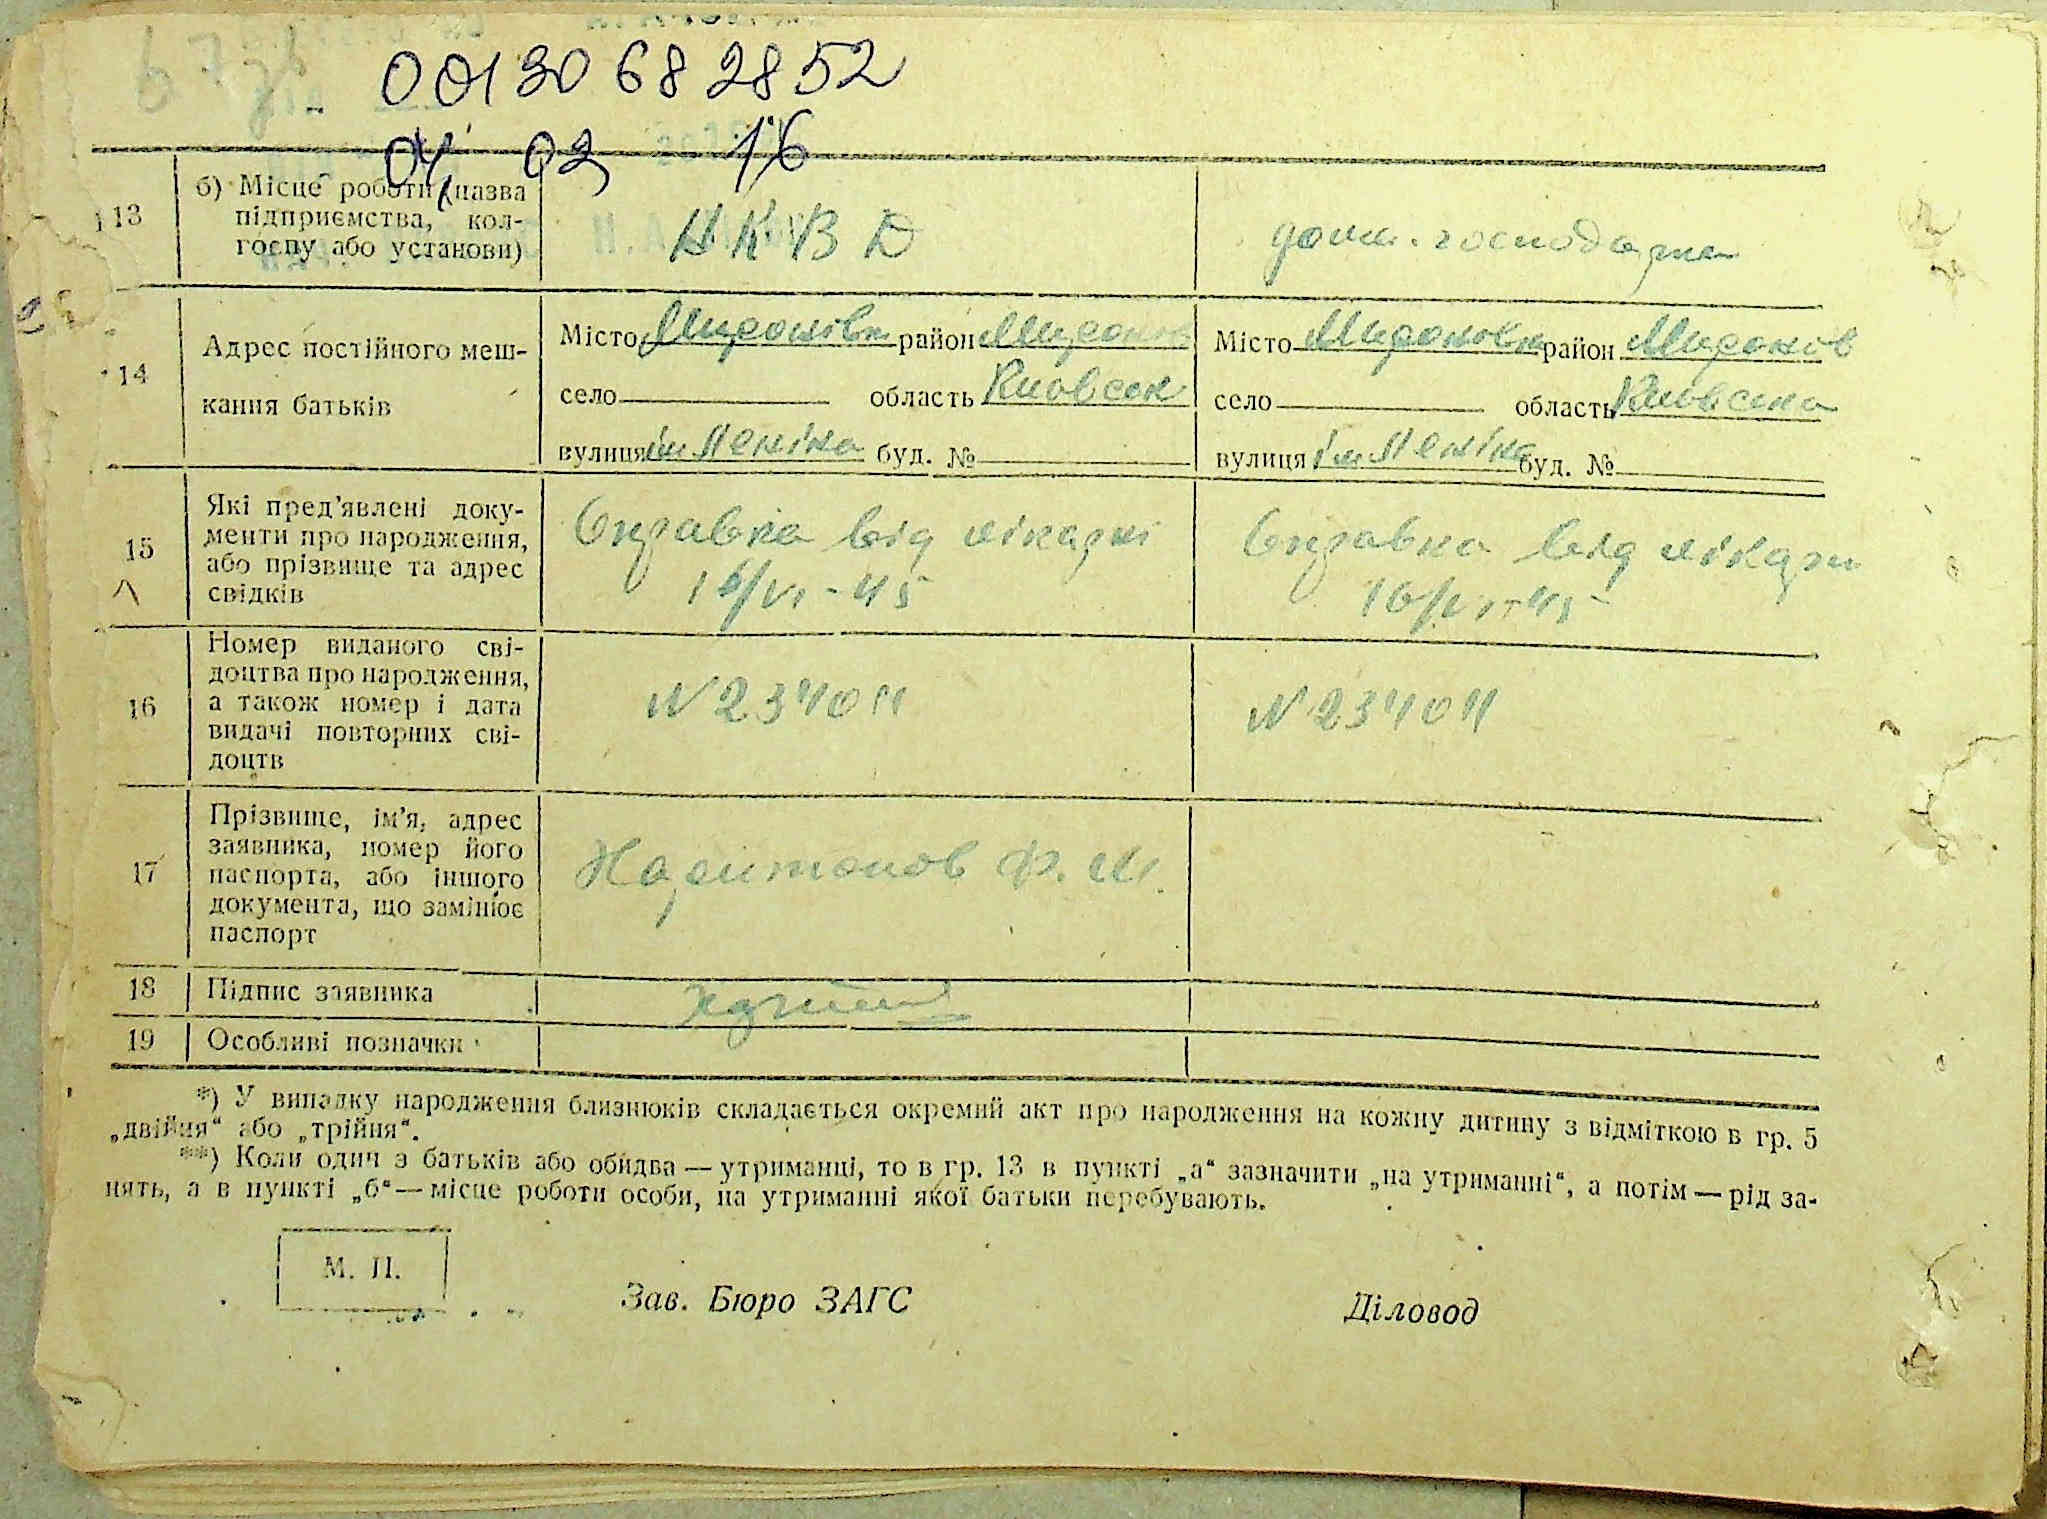 00130682852
04. 02 16
13 б) Місце роботи (назва підприємства, колгоспу або установи)
НКВД
дом. господарка
14 Адрес постійного мешкання батьків
Місто Миронівк район Миронів
село область Киовськ
вулиця ім Леніна буд. №
Місто Миронівк район Миронів
село область Киовська
вулиця ім Леніна буд. №
15 Які пред'явлені документи про народження, або прізвище та адрес свідків
Справка від лікарні
16/VI-45
Справка від лікарн
16/VI-45
16 Номер виданого свідоцтва про народження, а також номер і дата видачі повторних свідоцтв
N 234011
N 234011
17 Прізвище, ім'я, адрес заявника, номер його паспорта, або іншого документа, що замінює паспорт
Харитонов Ф. М.
18 Підпис заявника
19 Особливі позначки
*) У випадку народження близнюків складається окремий акт про народження на кожну дитину з відміткою в гр. 5
„двійня“ або „трійня“.
**) Коли один з батьків або обидва — утриманці, то в гр. 13 в пункті „а“ зазначити „на утриманні“, а потім — рід за-
нять, а в пункті „б“ — місце роботи особи, на утриманні якої батьки перебувають.
М. П.
Зав. Бюро ЗАГС
Діловод